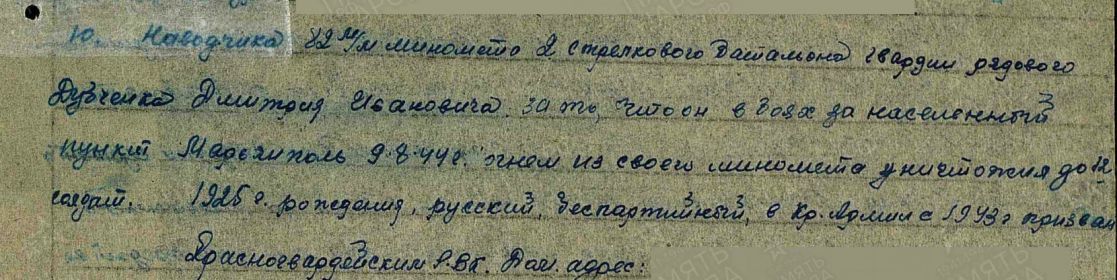 10. Наводчика 82 м/м миномета 2 стрелкового батальона гвардии рядового
Дубченко Дмитрия Ивановича за то, что он в боях за населенный
пункт Мадехиполь 9.8.44 г. огнем из своего миномета уничтожил до 12
солдат. 1925 г. рождения, русский, беспартийный, в Кр. Армии с 1943 г призван
Красногвардейским РВК. Дом. адрес: